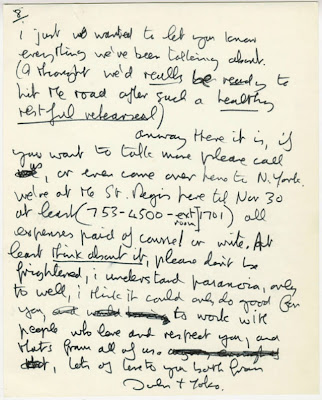 8.
i just wanted to let you know
everything we've been talking about.
(I thought we'd really be ready to
hit the road after such a healthy
restful rehearsal)
anyway there it is, if
you want to talk more please call
us, or even come over here to N.York.
we're at the St. Regis here til Nov 30
at least (753-4500-ext/room 1701) all
expenses paid of course! or write. At
least think about it, please don't be
frightened, i understand paranoia, only
to well, i think it could only do good for
you, to work with
people who love and respect you, and
thats from all of us.
lots of love to you both from
John + Yoko.